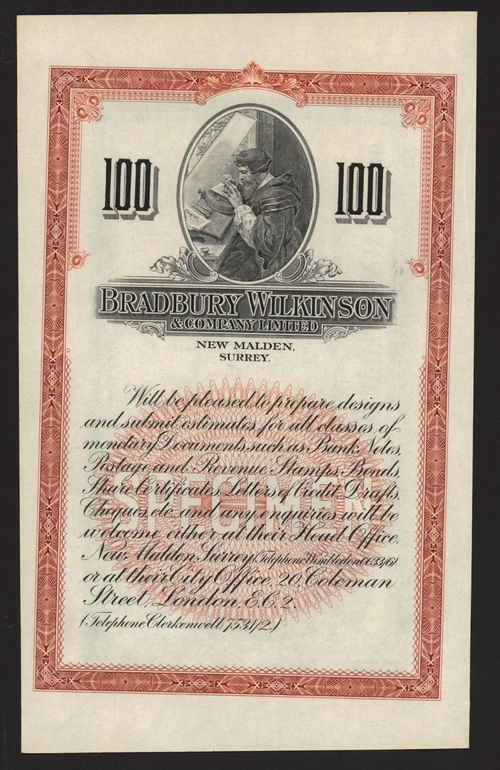 100 100
BRADBURY WILKINSON
& COMPANY LIMITED
NEW MALDEN,
SURREY.
Will be pleased to prepare designs
and submit estimates for all classes of
monetary Documents such as Bank Notes,
Postage and Revenue Stamps, Bonds,
Share Certificates, Letters of Credit, Drafts,
Cheques, etc., and any enquiries will be
welcome either at their Head Office,
SPECIMEN
New Malden, Surrey, (Telephone Wimbledon 0033/6)
or at their City Office, 20, Coleman
Street, London, E.C.2.
(Telephone Clerkenwell 7531/2.)